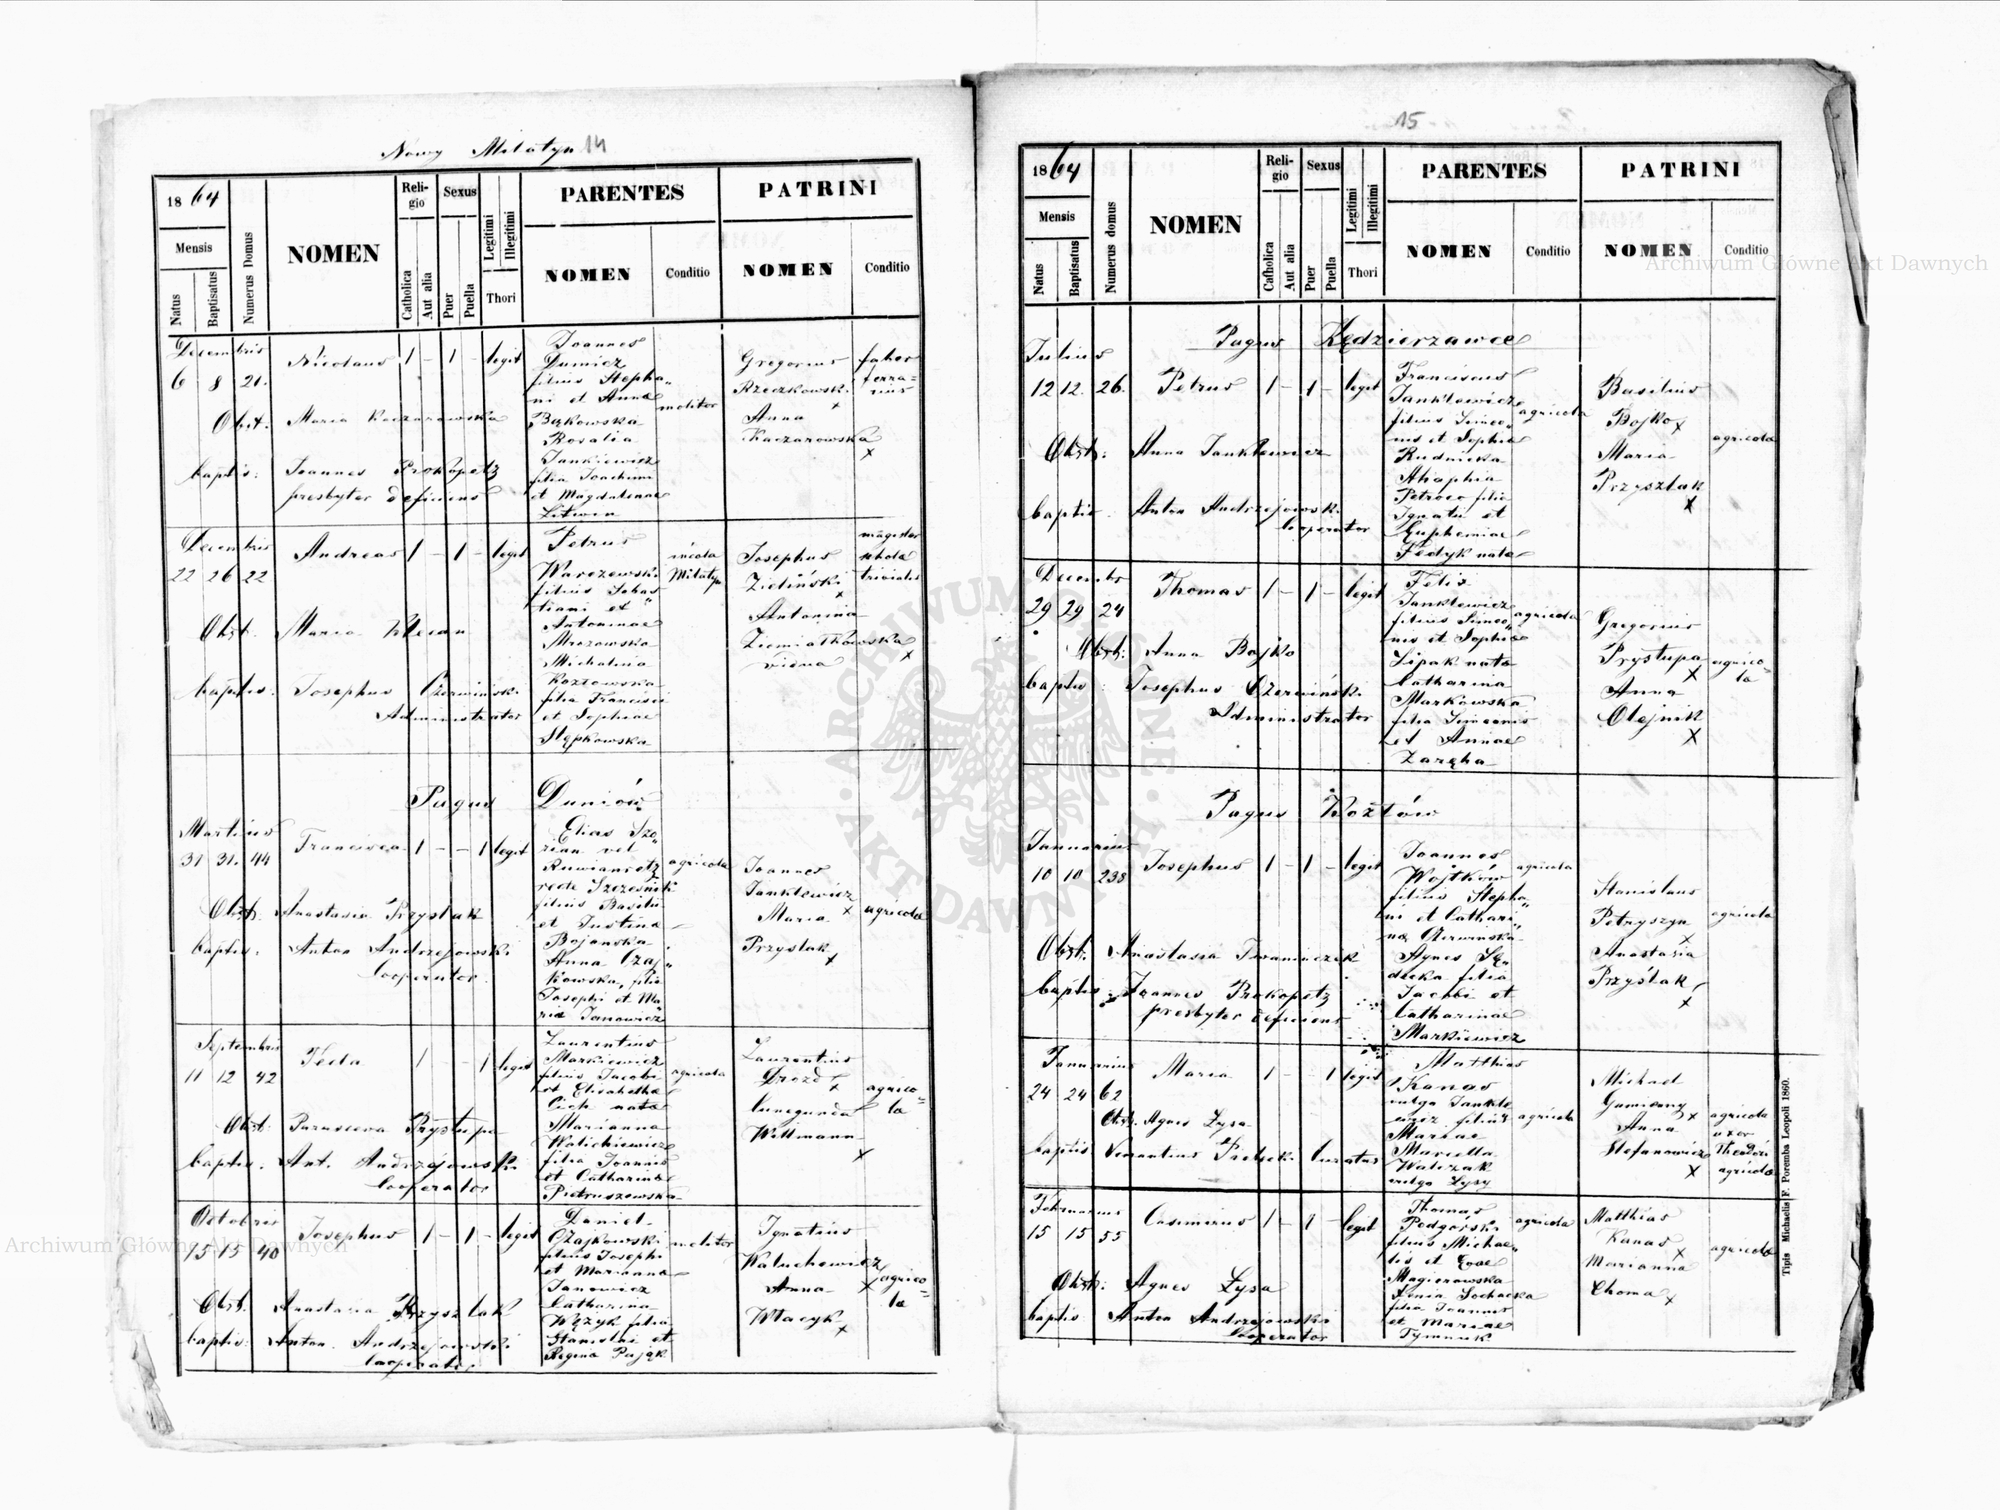 Nowy Milatyn 14
1864
Mensis
Natus
Baptisatus
Numerus Domus
NOMEN
Religio
Catholica
Aut alia
Sexus
Puer
Puella
Legitimi
Illegitimi
Thori
PARENTES
NOMEN
Conditio
PATRINI
NOMEN
Conditio
Decembris
6 8 21.
Nicolaus 1 – 1 – legit
Obst. Maria Kaczarowska
bapts: Joannes Prokopetz
presbyter deficiens
Joannes
Dumicz
filius Stepha„
ni et Anna
Bąkowska
Rosalia
Jankiewicz
filia Joachimi
et Magdalenae
Litwin
molitor
Gregorius
Rzeczkowski
x
Anna
Kaczarowska
x
faber
ferra=
rius
Decembris
22 26 22
Andreas 1 – 1 – legit
Obst. Maria Klecan
baptis. Josephus Czerwiński
Administrator
Petrus
Warczewski
filius Sebas
tiani et
Antoninae
Mrozowska
Michalina
Kozłowska
filia Francisci
et Sophiae
Stępkowska
incola
Milatyn
Josephus
Zieliński
x
Antonina
Ziemiałkowska
vidua x
magister
schola
trivialis
Pagus Duniów
Martius
31 31. 44
Francisca 1 – – 1 legit
Obst. Anastasia Przystak
baptis. Anton Andrzejowski
Cooperator
Elias Szo„
rian vel
recte Szczesński
filius Basilii
et Justina
Bojanska
Anna Czaj„
kowska, filia
Josephi et Ma„
ria Janowicz
agricola
Joannes
Janklewicz
Maria x
Przystak
x
agricola
Septembris
11 12 42
Thecla 1 – – 1 legit
Obst: Parascewa Prystupa
baptis. Ant. Andrzejowski
Cooperator
Laurentius
Markiewicz
filius Jacobi
et Elisabetha
Cich nata
Marianna
Walichiewicz
filia Joannis
et Catharina
Pietruszewska
agricola
Laurentius
Drozd
x
Cunegunda
Wittmann
x
agrico=
la
Octobris
15 15 40
Josephus 1 – 1 – legit
Obst. Anastasia Przysztak
baptis: Anton. Andrzejowski
Cooperator
Daniel
Czajkowski
filius Josephi
et Marianna
Janowicz
Catharina
Wężyk filia
Stanislai et
Regina Pająk
molitor
Ignatius
Kaluchewicz
Anna x
Wlacyk
x
agrico=
la
15
1864
Mensis
Natus
Baptisatus
Numerus domus
NOMEN
Religio
Catholica
Aut alia
Sexus
Puer
Puella
Legitimi
Illegitimi
Thori
PARENTES
NOMEN
Conditio
PATRINI
NOMEN
Conditio
Pagus Kędzierzawce
Julius
12 12. 26.
Petrus 1 – 1 – legit
Obst: Anna Janklewicz
baptis. Anton Andrzejowski
Cooperator
Franciscus
Janklewicz
filius Simeo„
nis et Sophia
Rudnicka
Ahaphia
Petrow filia
Ignatii et
Euphemiae
Fedyk nata
agricola
Basilius
Bojko x
Maria
Przysztak
x
agricola
Decembr
29 29 24
Thomas 1 – 1 – legit
Obst: Anna Bojko
baptis: Josephus Czerwiński
Administrator
Felix
Janklewicz
filius Simeo„
nis et Sophia
Lipak nata
Catharina
Markowska
filia Simeonis
et Annae
Zaręba
agricola
Gregorius
Prystupa
x
Anna
Olejnik
x
agrico=
la
Pagus Kozłów
Januarius
10 10 238
Josephus 1 – 1 – legit
Obst. Anastasia Iwaniuczek
baptis: Joannes Prokopetz
presbyter deficiens
Joannes
Wojtków
filius Stepha„
ni et Cathari„
na Czerwinska
Agnes Sę„
decka filia
Jacobi et
Catharinae
Markiewicz
agricola
Stanislaus
Petryszyn
x
Anastasia
Przystak
x
agricola
Januarius
24 24 62
Maria 1 – – 1 legit
Obst. Agnes Łysa
baptis Curatus
Matthias
Kanas
vulgo Jankle
wicz filius
Mariae
Marcella
Walczak
vulgo Łysy
agricola
Michael
x
Anna
Stefanowicz
x
agricola
uxor
Theodori
agricola
Februarius
15 15 55
Casimirus 1 – 1 – legit
Obst: Agnes Łysa
baptis Anton Andrzejowski
Cooperator
Thomas
Podgórski
filius Michae„
lis et Evae
Magierowska
Xenia Sochacka
filia Joannis
et Mariae
Tymczuk
agricola
Matthias
Kanas
x
Marianna
Choma x
agricola
Tipis Michaelis F. Poremba Leopoli 1860.
Archiwum Główne Akt Dawnych
Archiwum Główne Akt Dawnych
ARCHIWUM GŁÓWNE · AKT DAWNYCH ·